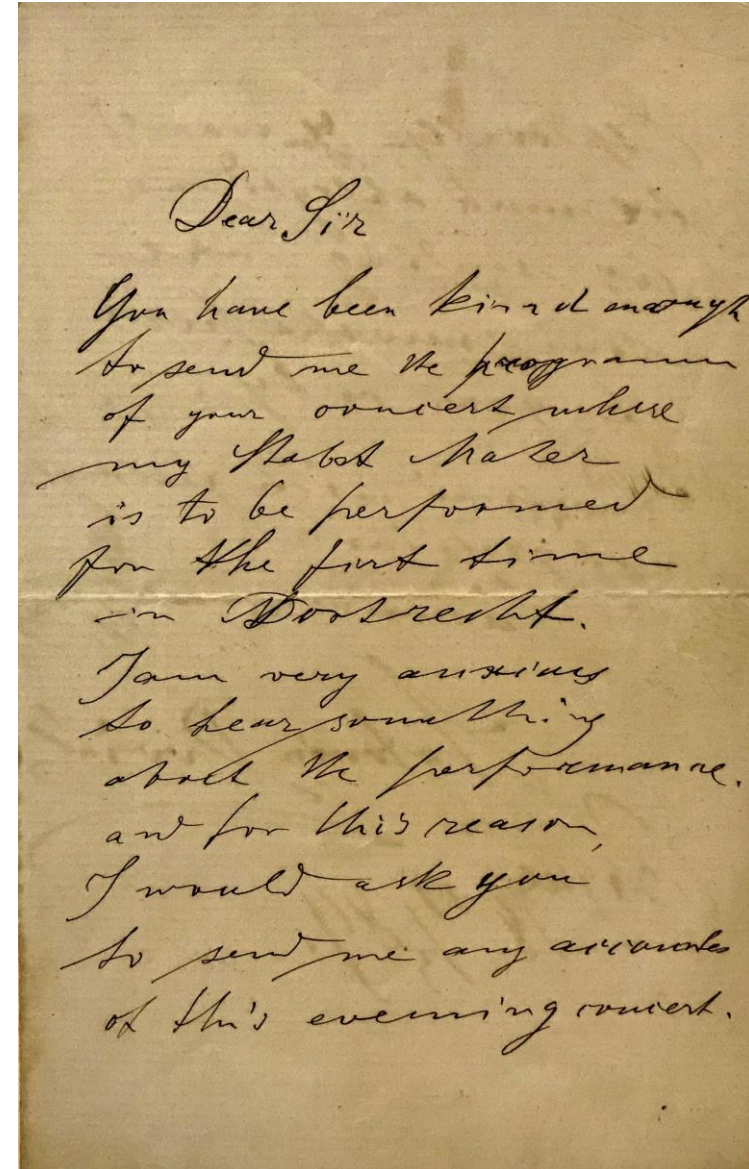 Dear Sir
You have been kind enough
to send me the programm
of your concert where
my Stabat Mater
is to be performed
for the first time
in Dortrecht.
I am very anxious
to hear something
about the performance.
and for this reason,
I would ask you
to send me any accounts
of this evening concert.